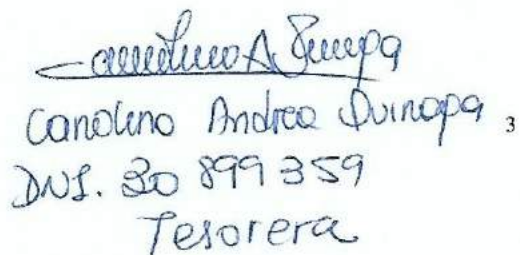 Carolina Andrea Quiñopa 3
DNI. 30 899 359
Tesorera